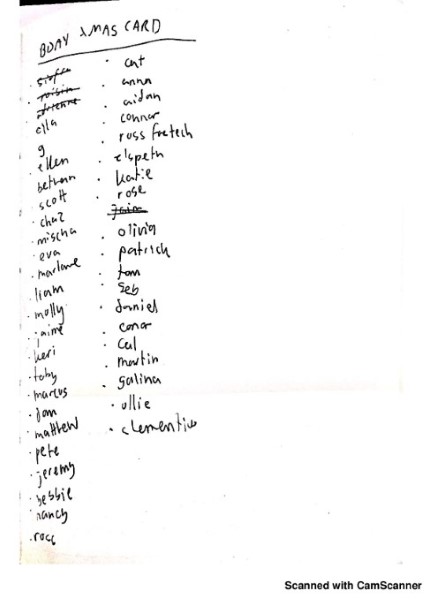 BDAY XMAS CARD
ella
g
ellen
bethan
scott
chaz
mischa
eva
marlowe
liam
molly
jaime
keri
toby
marcus
dom
matthew
pete
jeremy
debbie
nancy
cat
anna
aidan
connor
ross
elspeth
katie
rose
olivia
patrick
tom
seb
daniel
conor
cal
martin
galina
ollie
Scanned with CamScanner